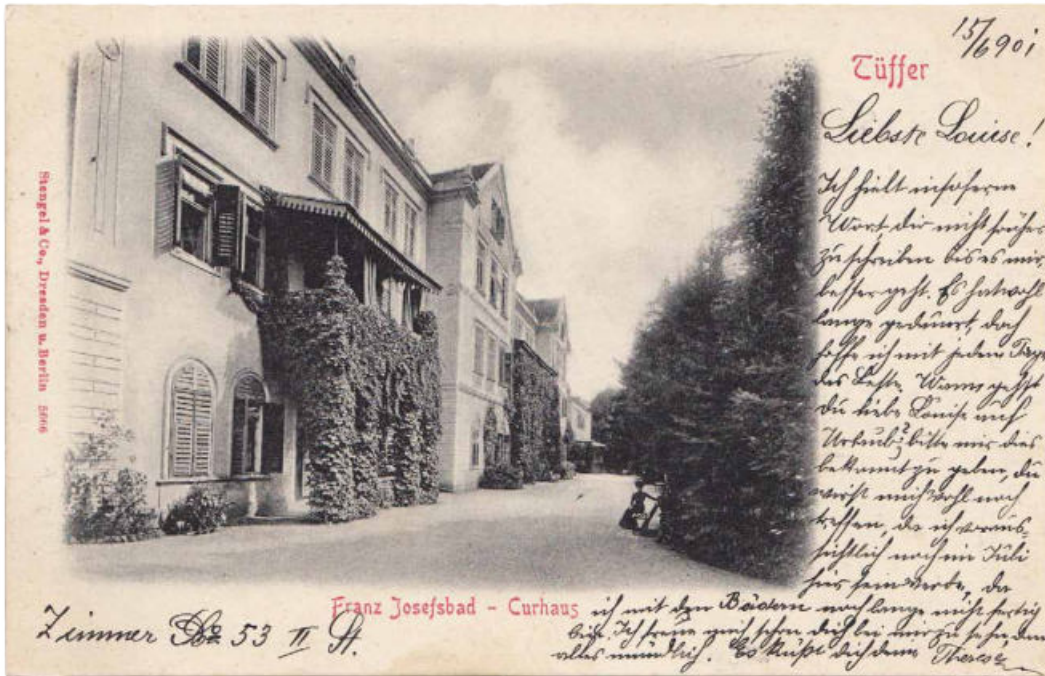 15/6 901
Tüffer
Liebste Louise!
Ich hielt insoferne
Wort dir nicht früher
zu schreiben bis es mir
besser geht. Es hat wohl
lange gedauert, doch
hoffe ich mit jedem Tage
das Beste. Wann gehst
du liebe Louise auf
Urlaub? bitte mir dies
bekannt zu geben, du
wirst mich wohl noch
treffen, da ich voraus-
sichtlich noch im Juli
hier sein werde, da
ich mit den Bädern noch lange nicht fertig
bin. Ich freue mich schon dich bei mir zu sehen, dann
alles mündlich. Es küßt dich deine Therese
Franz Josefsbad - Curhaus
Zimmer No 53 II St.
Stengel & Co., Dresden u. Berlin 5666